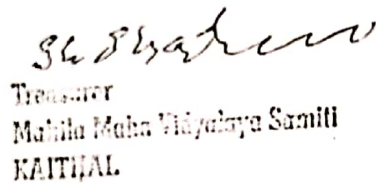 Treasurer
Mahila Maha Vidyalaya Samiti
KAITHAL